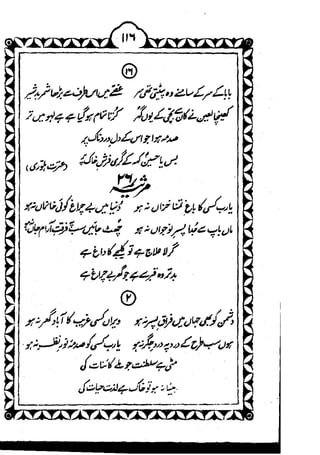 ۱۱۶
۱۶
بابا کے سر کے سامنے وہ بیٹی تھی غصے میں اس طرف سے بڑھا شمر بد شیر
کھینچا لعین نے کان سے بچی کے یوں گہر کُرتا تمام ہو گیا ہے ہے لہو میں تر
صدمہ ہوا جو اس کے دل دردناک پر
بس یا حسینؑ کہہ کے گری فرش خاک پر
مرثیہ ۳۶
یارب کسی کا باغِ تمنا خزاں نہ ہو دُنیا میں بے چراغ کوئی خانماں نہ ہو
ماں باپ سے جُدا پسرِ نوجواں نہ ہو چھٹ جائیں سب پہ فرقتِ آرامِ جاں نہ ہو
گر لا علاج ہے تو کلیجے کا داغ ہے
بدتر وہ قبر سے ہے جو گھر بے چراغ ہے
۲
دشمن کو بھی جہاں میں فراقِ پسر نہ ہو ویراں کسی غریب کا آباد گھر نہ ہو
ہوں سب طرح کے درد پہ دردِ جگر نہ ہو یارب کسی کو صدمۂ نورِ نظر نہ ہو
مٹی ہے سلطنت جو ملے کائنات کی
بیٹا نہ ہو تو خاک ہے لذت حیات کی